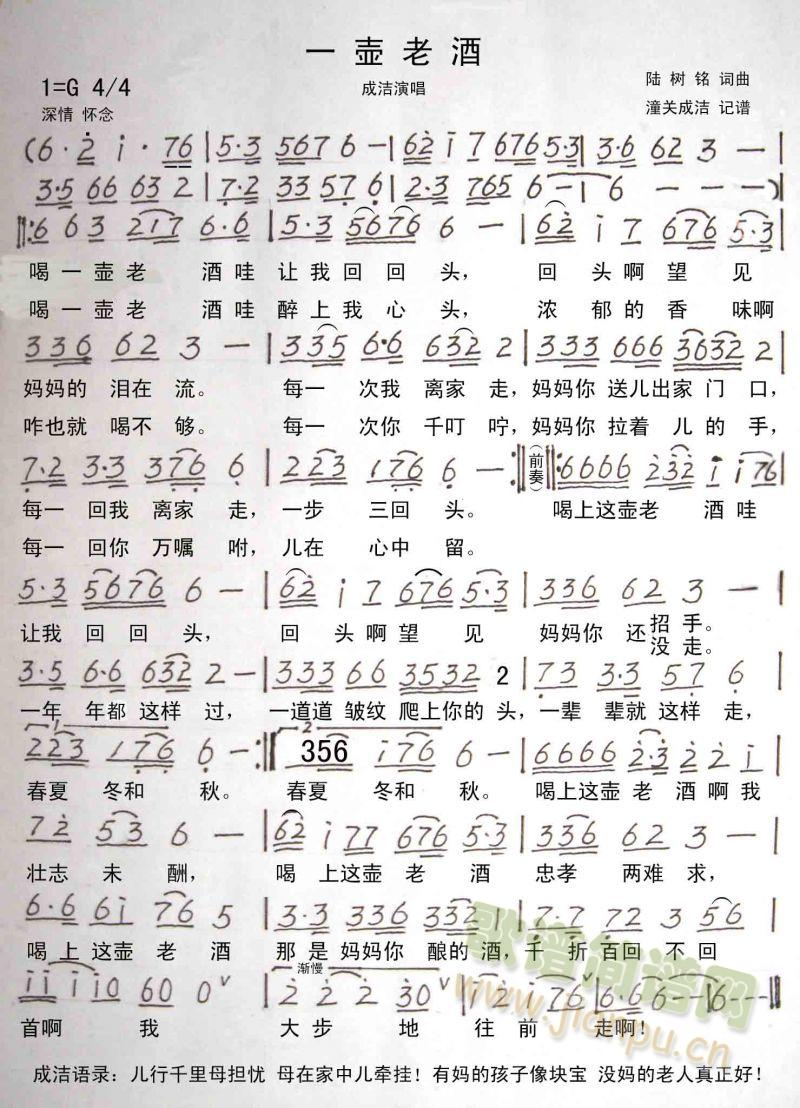 一壶老酒
1=G 4/4
成洁演唱
陆树铭 词曲
深情 怀念
潼关成洁 记谱
(6·2 i·76|5·3 5676 6 —|62 i7 676 5·3|3·6 62 3 —|
3·5 66 63 2|7·2 33 57 6|2·3 765 6 —|6 — — —)|
‖:6 63 217 6·6|5·3 5676 6 —|62 i7 676 5·3|
喝一壶老 酒哇 让我回回头, 回头啊望见
喝一壶老 酒哇 醉上我心头, 浓郁的香味啊
336 62 3 —|335 6·6 632 2|333 666 3632 2|
妈妈的 泪在流。 每一 次我 离家 走,妈妈你 送儿出家 门 口,
咋也就 喝不 够。 每一 次你 千叮 咛,妈妈你 拉着 儿 的 手,
7·2 33 376 6|223 176 6 —:‖(前奏)‖:6666 232 i i76|
每一 回我 离家 走, 一步 三回 头。 喝上这壶老 酒哇
每一 回你 万嘱 咐, 儿在 心中 留。
5·3 5676 6 —|62 i7 676 5·3|336 62 3 —|
让我 回回 头, 回 头啊望 见 妈妈你 还招手。
没走。
3·5 6·6 632 2—|333 66 3532 2|73 3·3 57 6|
一年 年都 这样 过, 一道道 皱纹 爬上你的 头,一辈 辈就 这样 走,
1 2
223 176 6 —:‖356 i76 6 —|6666 2·3 22 i|
春夏 冬和 秋。 春夏 冬和 秋。 喝上这壶 老 酒啊我
72 53 6 —|62 i77 676 5·3|336 62 3 —|
壮志 未 酬, 喝 上这壶 老 酒 忠孝 两难 求,
6·6 6i 76 5|3·3 33 62 2|7·7 72 3 56|
喝 上 这壶 老 酒 那 是 妈妈你 酿的 酒,千 折 百回 不回
渐慢
ii i i0 60 0 V|2 2 2 30 V|2 i2 i 76 V|6·6 6 —|6 — — —‖
首啊 我 大步 地 往前 走啊!
歌谱简谱网
www.jianpu.cn
成洁语录:儿行千里母担忧 母在家中儿牵挂!有妈的孩子像块宝 没妈的老人真正好!